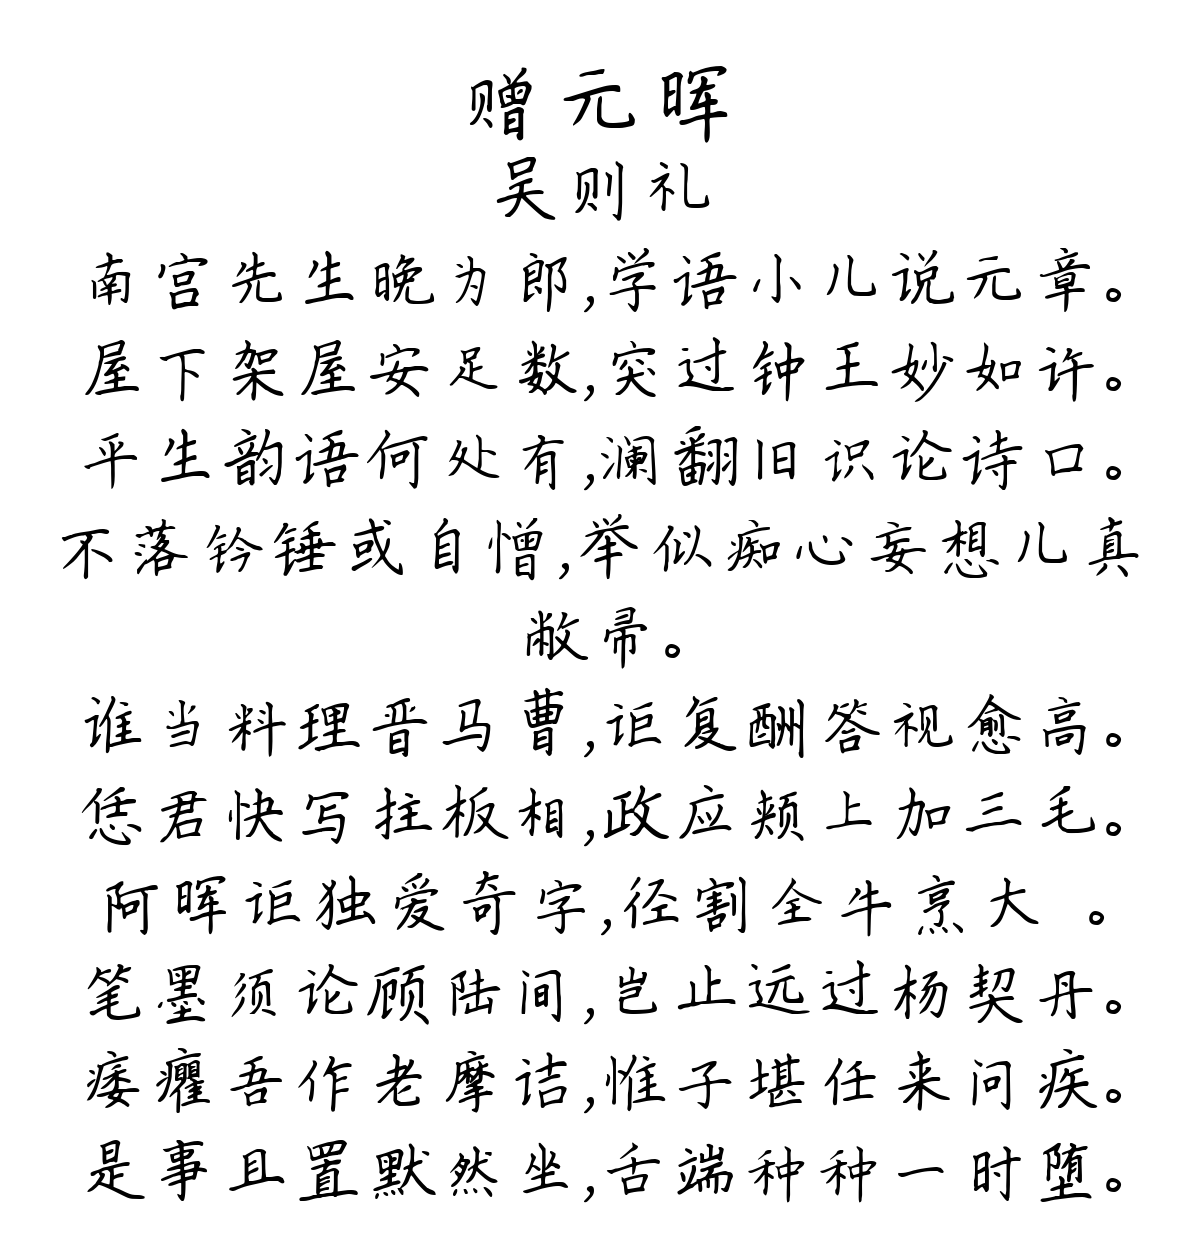 赠元晖
吴则礼
南宫先生晚为郎,学语小儿说元章。
屋下架屋安足数,突过钟王妙如许。
平生韵语何处有,澜翻旧识论诗口。
不落钤锤或自憎,举似痴心妄想儿真
敝帚。
谁当料理晋马曹,讵复酬答视愈高。
恁君快写拄板相,政应颊上加三毛。
阿晖讵独爱奇字,径割全牛烹大 。
笔墨须论顾陆间,岂止远过杨契丹。
痿癯吾作老摩诘,惟子堪任来问疾。
是事且置默然坐,舌端种种一时堕。